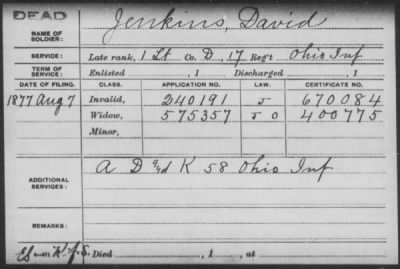 DEAD
Jenkins, David
NAME OF SOLDIER:
SERVICE: Late rank, 1 Lt Co. D, 17 Reg't Ohio Inf
TERM OF SERVICE: Enlisted , 1 Discharged , 1
DATE OF FILING. CLASS. APPLICATION NO. LAW. CERTIFICATE NO.
1877 Aug 7 Invalid, 240191 5 670084
Widow, 575357 50 400775
Minor,
ADDITIONAL SERVICES: A D K 58 Ohio Inf
REMARKS:
K.f.S. Died , 1 , at